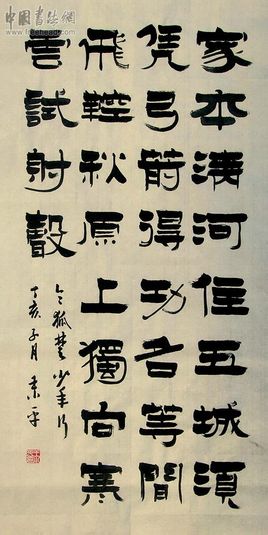 中國書法網
家本清河住五城須
凭弓箭得功名等閒
飛鞚秋原上獨向寒
雲試射聲
令狐楚少年行
丁亥子月